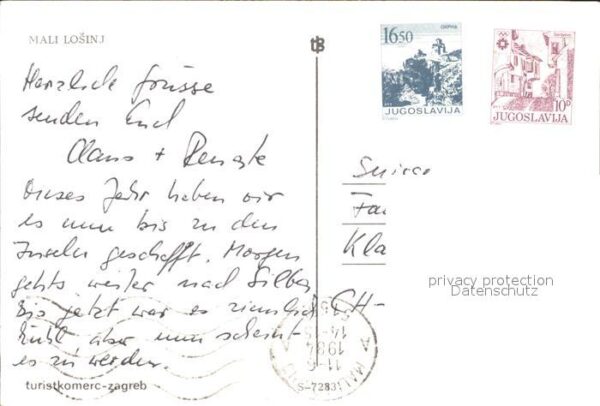 MALI LOŠINJ
tB
16.50
JUGOSLAVIJA
10.⁰
JUGOSLAVIJA
Herzliche Grüsse
senden Euch
Claus + Renate
Dieses Jahr haben wir
es nun bis zu den
Inseln geschafft. Morgen
gehts weiter nach Silba
Bis jetzt war es ziemlich
kühl aber nun scheint
es zu werden.
Suisse
Fa
Kla
CH-
privacy protection
Datenschutz
1984
turistkomerc-zagreb
S-7283